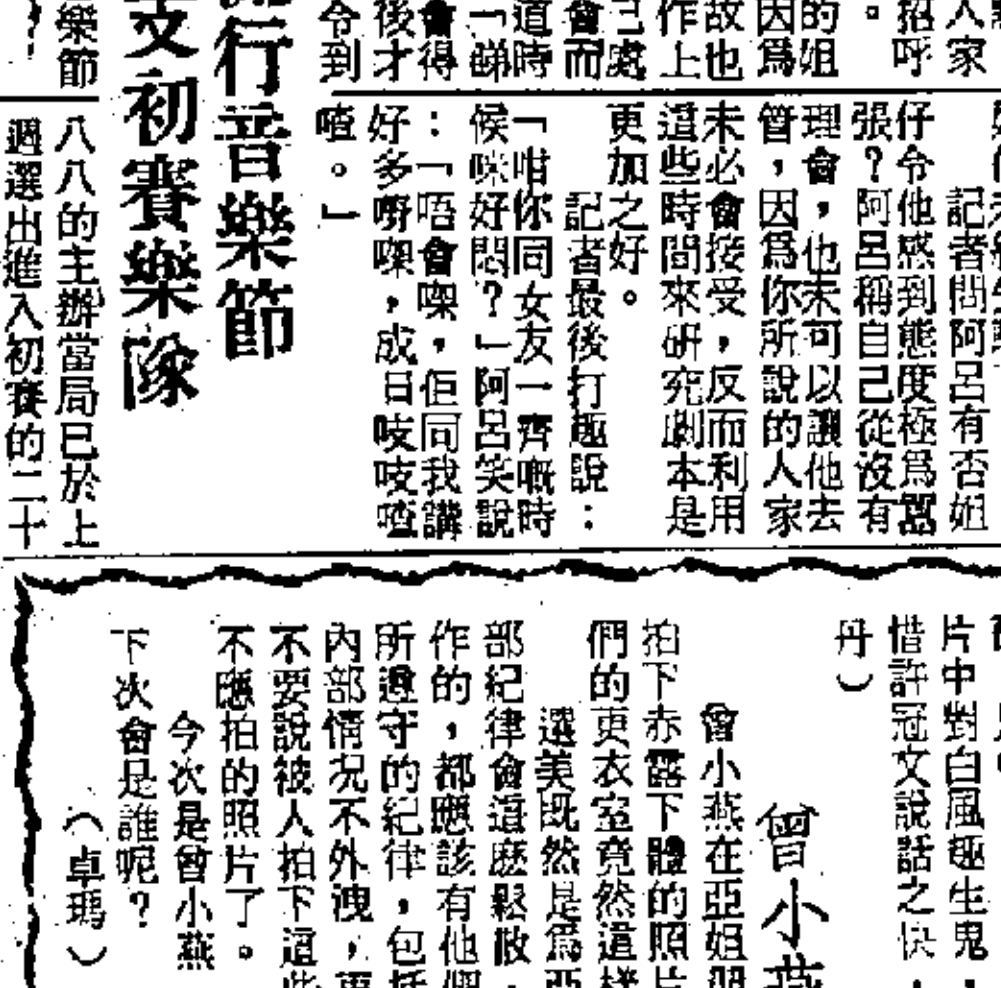 人家
招呼
。
的姐
因為
故也
作上
己處
會而
道時
「睇
會得
後才
令到
記者問阿呂有否姐
仔令他感到態度極為囂
張？阿呂稱自己從沒有
理會，他也未可以讓他去
管，因為你所說的人家
未必會接受，反而利用
這些時間來研究劇本是
更加之好。
記者最後打趣說：
「咁你同女友一齊嘅時
候咪好悶？」阿呂笑說
：「唔會㗎，但同我講
好多嘢㗎，成日吱吱喳
喳。」
行音樂節
文初賽樂隊
樂節
八八的主辦當局已於上
週選出進入初賽的二十
片中對白風趣生鬼，
惜許冠文說話之快，
丹）
曾小燕
曾小燕在亞姐
拍下赤露下體的照片
們的更衣室竟然這樣
選美既然是為亞
部紀律會這麼鬆散，
作的，都應該有他們
所遵守的紀律，包括
內部情況不外洩，更
不要說被人拍下這些
不應拍的照片了。
今次是曾小燕
下次會是誰呢？
（卓瑪）